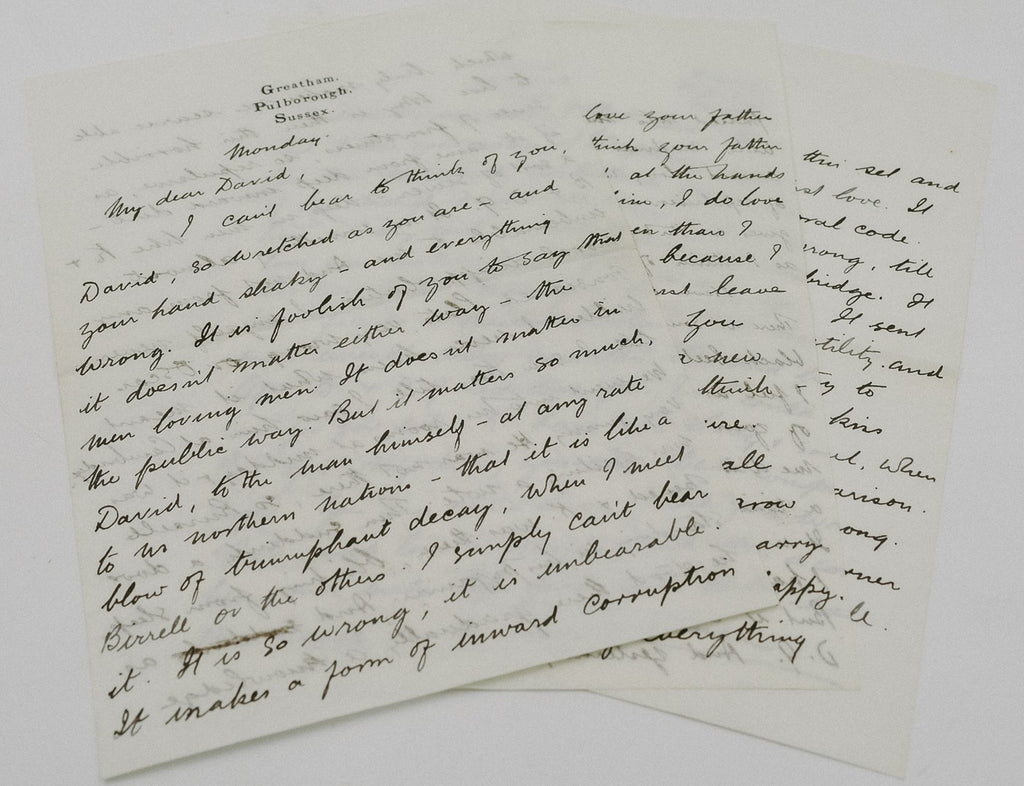 Greatham.
Pulborough.
Sussex.
Monday.
My dear David,
I can't bear to think of you,
David, so wretched as you are – and
your hand shaky – and everything
wrong. It is foolish of you to say that
it doesn't matter either way – the
men loving men. It doesn't matter in
the public way. But it matters so much,
David, to the man himself – at any rate
to us northern nations – that it is like a
blow of triumphant decay, when I meet
Birrell or the others. I simply can't bear
it. It is so wrong, it is unbearable.
It makes a form of inward corruption
love your father
think your father
at the hands
I do love
than I
because I
leave
you
new
think –
all
everything
set and
love. It
code.
till
It
It sent
and
to
kiss
when